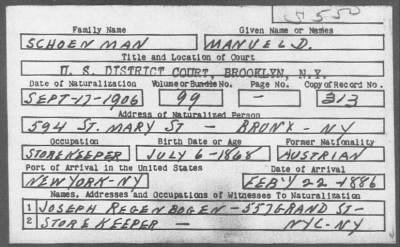 5550
Family Name Given Name or Names
SCHOENMAN MANUEL D.
Title and Location of Court
U. S. DISTRICT COURT, BROOKLYN, N.Y.
Date of Naturalization Volume or Bundle No. Page No. Copy of Record No.
SEPT-17-1906 99 - 313
Address of Naturalized Person
594 ST. MARY ST - BRONX - NY
Occupation Birth Date or Age Former Nationality
STOREKEEPER JULY 6-1868 AUSTRIAN
Port of Arrival in the United States Date of Arrival
NEW YORK-NY FEB'Y 22-1886
Names, Addresses and Occupations of Witnesses To Naturalization
1 JOSEPH REGENBOGEN - 557 GRAND ST-
2 STOREKEEPER - NYC-NY